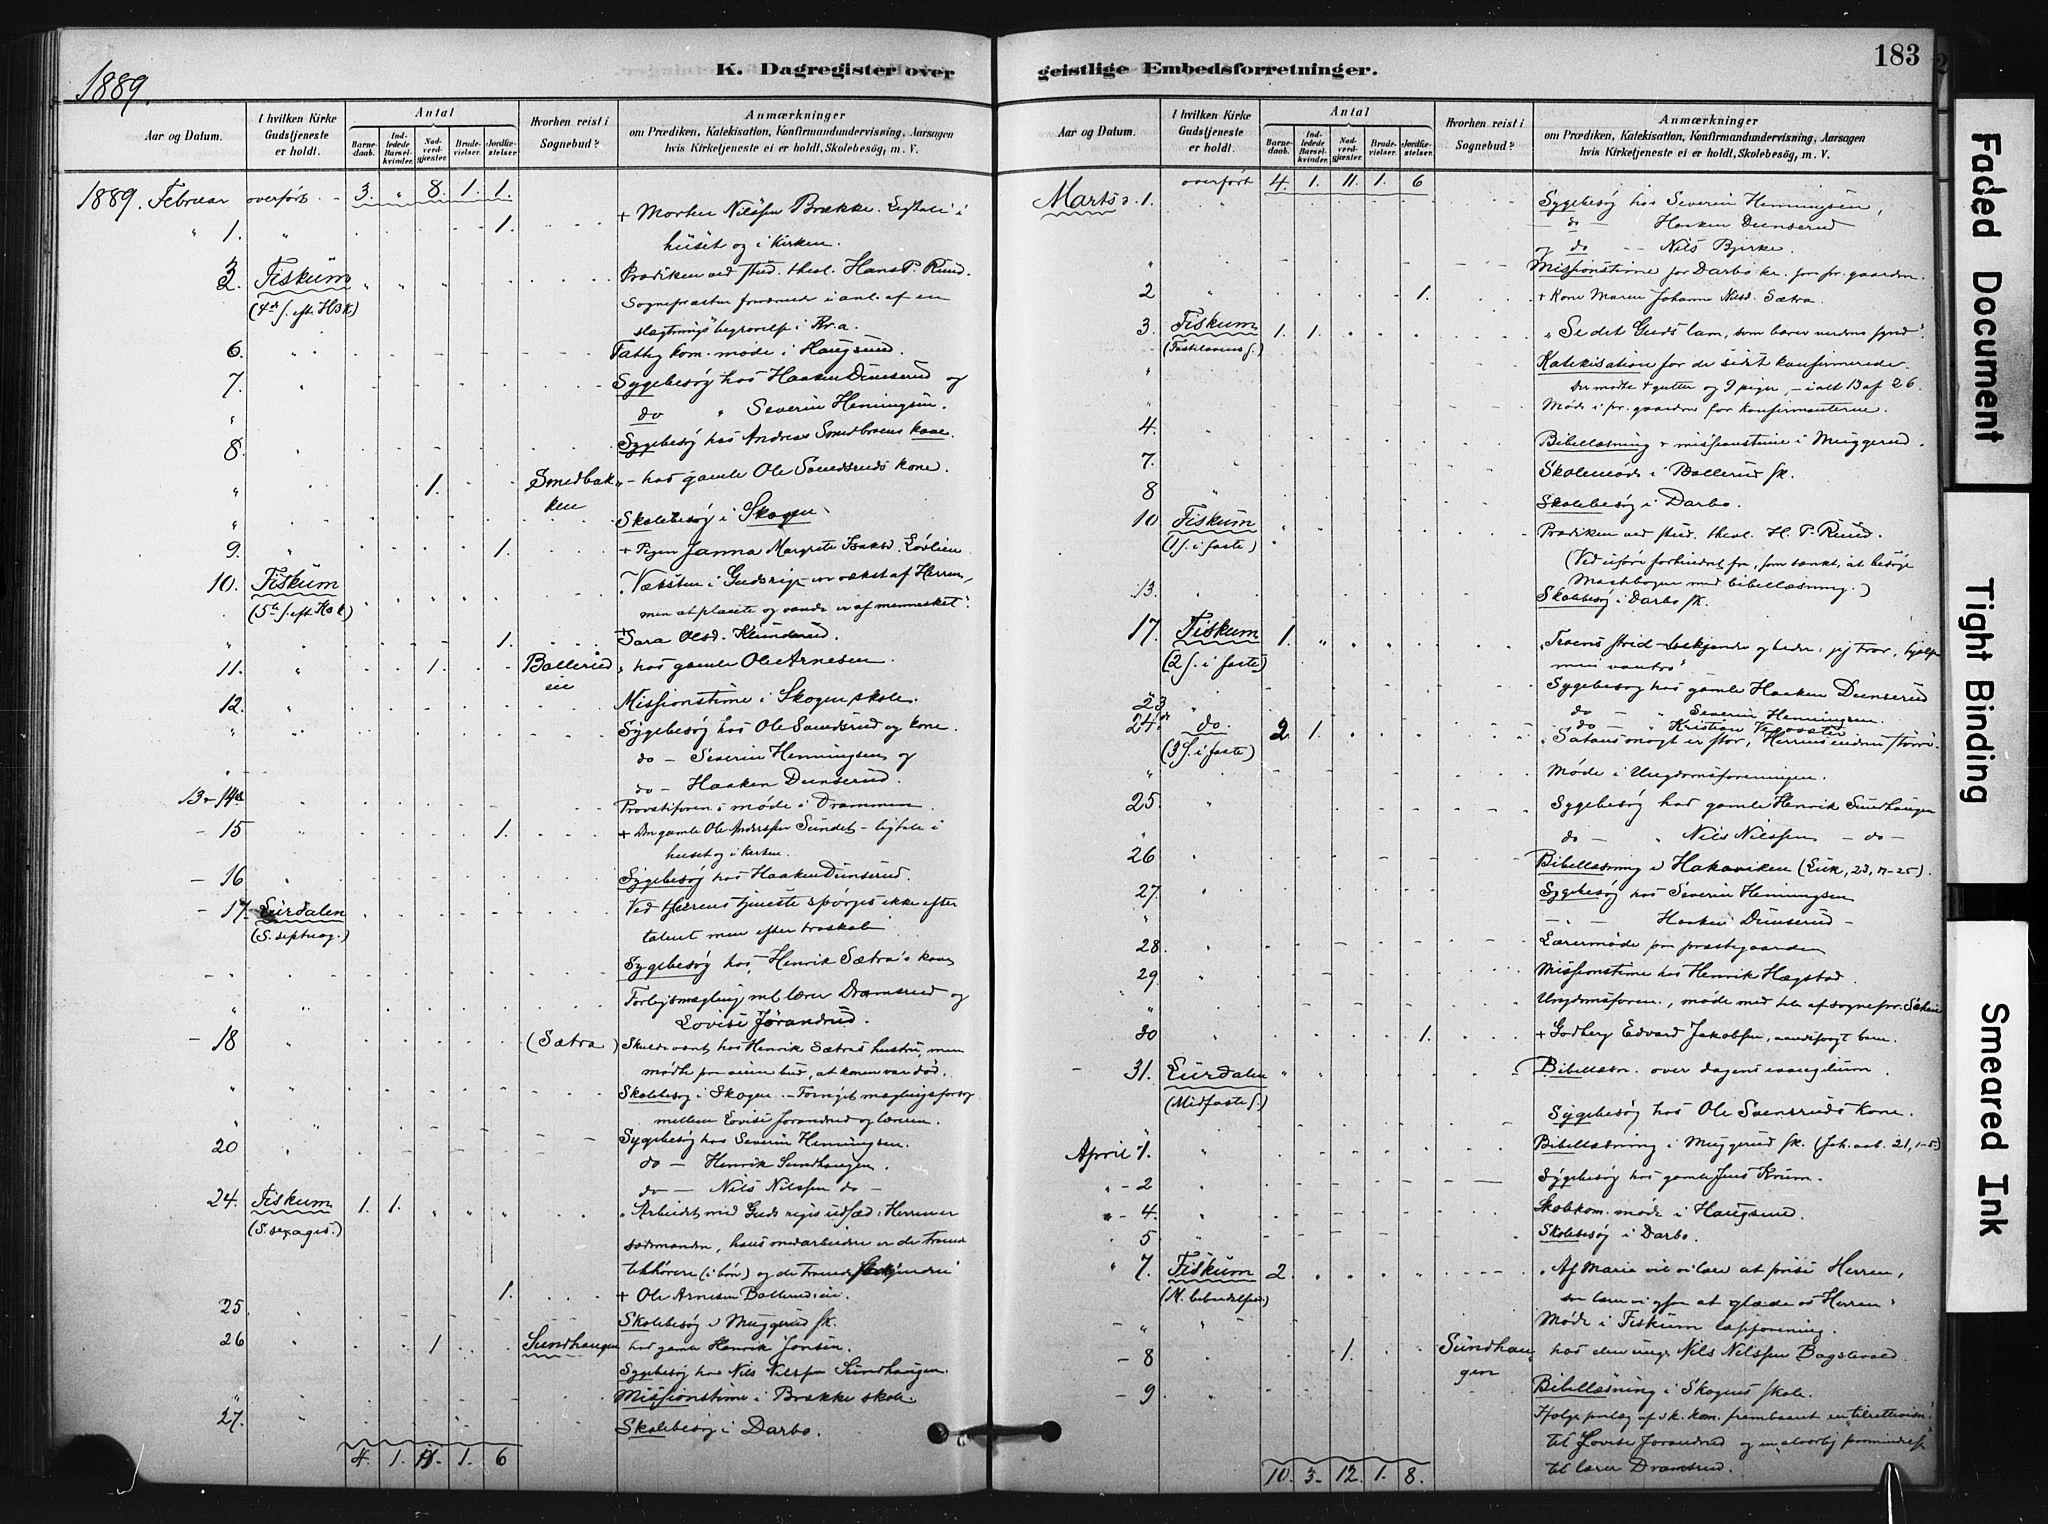 183
1889.
K. Dagregister over
geistlige Embedsforretninger.
Aar og Datum.
I hvilken Kirke Gudstjeneste er holdt.
Antal
Barnedaab.
Indledede Barselkvinder.
Nadverdgjester.
Brudevielser.
Jordfæstelser.
Hvorhen reist i Sognebud?
Anmærkninger
om Prædiken, Katekisation, Konfirmandundervisning, Aarsagen
hvis Kirketjeneste ei er holdt, Skolebesøg, m. V.
1889. Februar overført 3. " 8. 1. 1.
" 1. " 1. + Morten Nilssen Brække. Ligtale i
huset og i Kirken.
3. Fiskum Prædiken ved stud. theol. Hans P. Ruud.
(4de s. eft. H3K) Sognepræsten fraværende i anl. af en
slægtnings begravelse i Kr.a.
6. Fattigkom. møde i Haugsund.
7. Sygebesøg hos Haaken Dunserud og
" do " Severin Henningsen.
8. Sygebesøg hos Andreas Smedbraens kone.
" 1. Smedbakken " - hos gamle Ole Svendsruds kone.
" Skolebesøg i Skogen
9. " 1. + Pigen Janna Margrete Isaksd. Løvlien
10. Fiskum "Væksten i Guds rige er vækst af Herren,
(5te s. eft. H3K) men at plante og vande er af mennesket".
" 1. + Sara Olsd. Klunderud.
11. " 1. Ballerud eie " hos gamle Ole Arnesen.
12. " Missionstime i Skogen skole.
" Sygebesøg hos Ole Svendsrud og kone.
do - Severin Henningsen og
" do - Haaken Dunserud.
13-14de " Provstiforen. i møde i Drammen
- 15 " 1. + Den gamle Ole Anderssen Sundet - ligtale i
huset og i kirken.
- 16 " Sygebesøg hos Haaken Dunserud.
- 17. Eurdalen Ved Herrens tjeneste spørges ikke efter
(S. septuag.) talent men efter troskab
- " Sygebesøg hos Henrik Sætra's kone
" Forligsmægling ml. lærer Dramsrud og
Lovise Jørandrud.
- 18 " (Sætra) Skulde vært hos Henrik Sætras hustru, men
mødte paa veien bud, at konen var død.
" Skolebesøg i Skogen. - Fornyet mæglingsforsøg
" mellem Lovise Jorandrud og læreren.
20 " Sygebesøg hos Severin Henningsen.
do - Henrik Sundhaugen.
do - Nils Nilssen do -
24. Fiskum 1. 1. " " " "Arbeidet med Guds riges udsæd: Herren er
(S. sexages.) sædmanden, hans medarbeidere er de troende
tilhørere (i bøn) og de troende
1. + Ole Arnesen Ballerudeie.
25. " Skolebesøg i Muggerud sk.
26 " 1 Sundhaugen hos gamle Henrik Jonsen.
Sygebesøg hos Nils Nilssen Sundhaugen.
" Missionstime i Brække skole.
27. " Skolebesøg i Darbo.
4. 1. 11. 1. 6
Aar og Datum.
I hvilken Kirke Gudstjeneste er holdt.
Antal
Barnedaab.
Indledede Barselkvinder.
Nadverdgjester.
Brudevielser.
Jordfæstelser.
Hvorhen reist i Sognebud?
Anmærkninger
om Prædiken, Katekisation, Konfirmandundervisning, Aarsagen
hvis Kirketjeneste ei er holdt, Skolebesøg, m. V.
overført 4. 1. 11. 1. 6
Marts 1. " Sygebesøg hos Severin Henningsen,
- do - Haaken Dunserud
og do - Nils Bjerke.
" Missionstime for Darbo kr. paa pr. gaarden.
2 " 1. + Kone Maren Johanne Nilsd. Sætra.
3. Fiskum 1. 1. "Se det Guds lam, som bærer verdens synd".
(Fastelavens s.)
" Katekisation for de sidst konfirmerede.
Der mødte 4 gutter og 9 piger, - ialt 13 af 26.
" Møde i pr. gaarden for konfirmanterne.
4. " Bibellæsning & missionstime i Muggerud.
7. " Skolemøde i Ballerud sk.
8 " Skolebesøg i Darbo.
10 Fiskum Prædiken ved stud. theol. H. P. Ruud.
(1 s. i faste) (Ved uføre forhindret fra, som tænkt, at besøge
Mastebogen med bibellæsning.)
13. " Skolebesøg i Darbo sk.
17. Fiskum 1. "Troens strid - bekjende og bede: jeg tror, hjælp
(2 s. i faste) min vantro"
Sygebesøg hos gamle Haaken Dunserud
23 " do - " Severin Henningsen.
do - " Kristian
24de do. 2. 1. "Satans magt er stor, Herrens endnu større.
(3 s. i faste)
" Møde i Ungdomsforeningen.
25 " Sygebesøg hos gamle Henrik Sundhaugen
" do - " Nils Nilssen - do -
26 " Bibellæsning i Hakaviken (Luk. 23, 17-25).
27. " Sygebesøg hos Severin Henningsen
" - " - Haaken Dunserud -
28. " Lærermøde paa præstegaarden
29 " Missionstime hos Henrik Hægstad.
" Ungdomsforen., møde med tale af sognepr.
30 " 1. + Godberg Edvard Jakobsen, aandssvagt barn.
- 31. Eurdalen Bibellæsn. over dagens evangelium.
(Midfaste s.)
" Sygebesøg hos Ole Svensruds kone.
April 1. " Bibellæsning i Muggerud sk. (Joh. aab. 21, 1-5)
" - 2 " Sygebesøg hos gamle Jens Krum.
" - 4. " Skolekom. møde i Haugsund.
5 " Skolebesøg i Darbo.
" 7. Fiskum 2. "Af Maria vil vi lære at prise Herren,
(M. bebudelse) saa lærer vi ogsaa at glæde os i Herren"
- " " Møde i Fiskum læseforening.
- 8 " 1. Sundhaugen " hos den unge Nils Nilssen
- 9 " Bibellæsning i Skogens skole.
Ifølge paalæg af sk. kom. frembaaret en tilrettevisn.
til Lovise Jorandrud og en alvorlig paamindelse
til lærer Dramsrud.
10. 3. 12. 1. 8.
Faded Document
Tight Binding
Smeared Ink